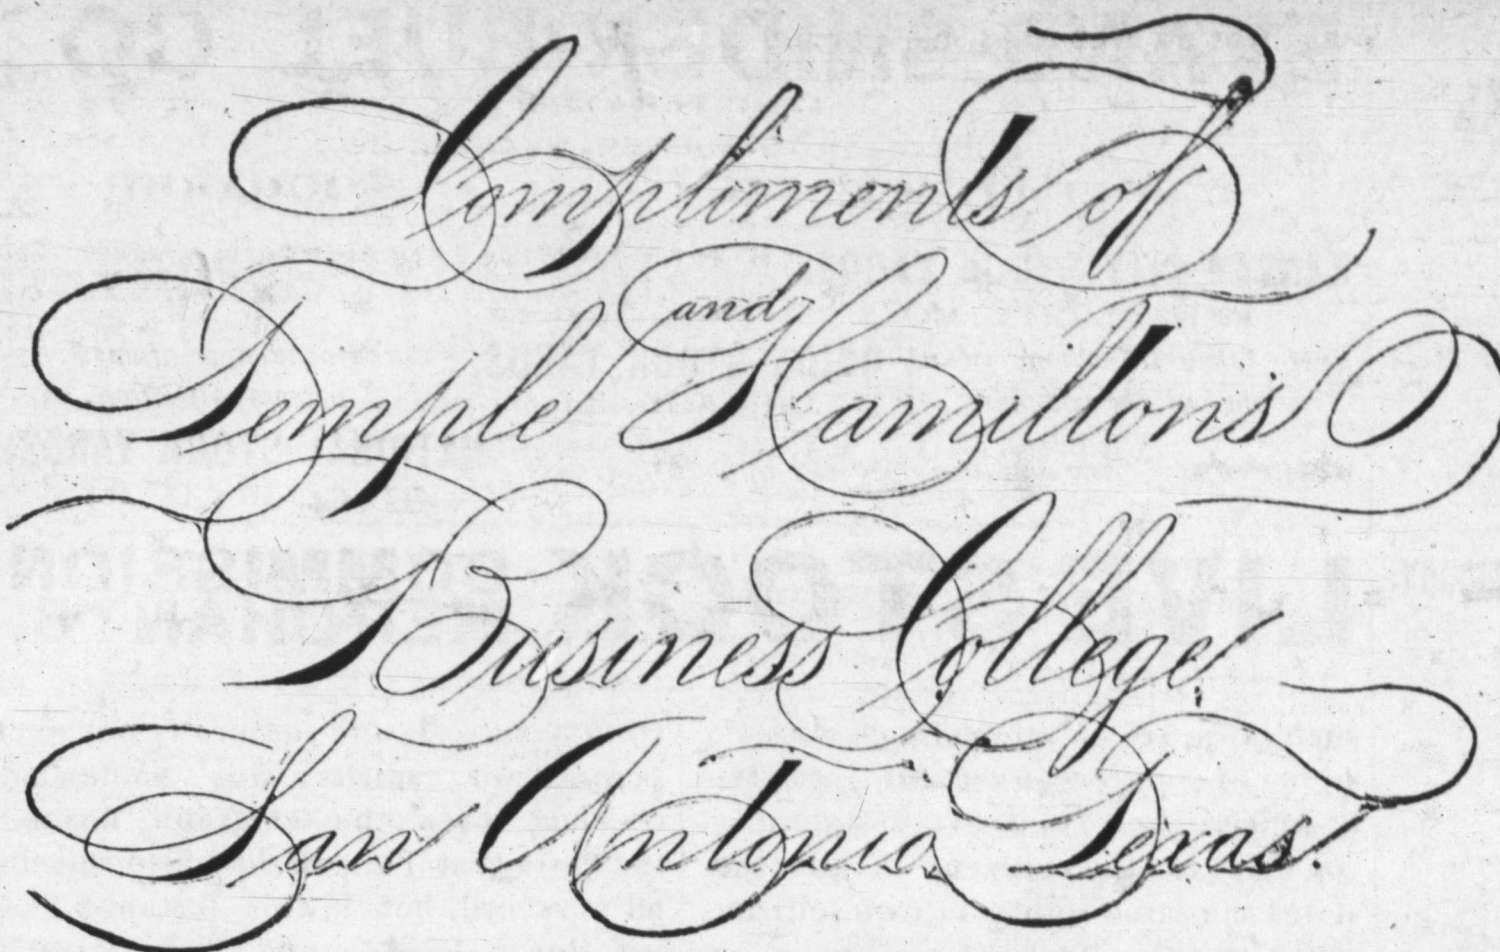 Compliments of
Temple and Hamilton's
Business College
San Antonio, Texas.